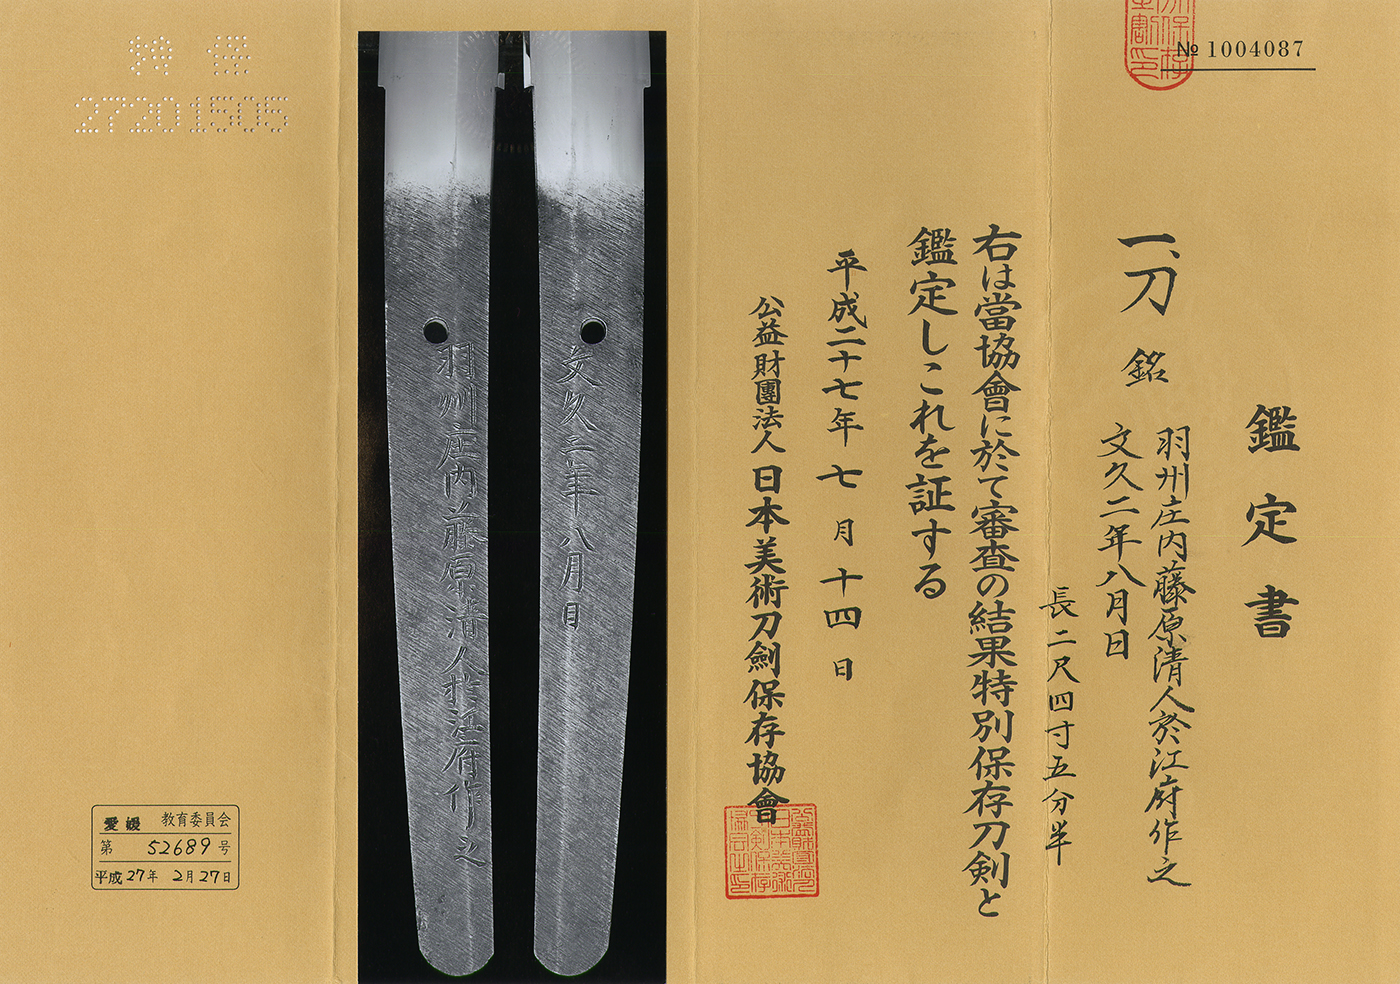 № 1004087
鑑定書
一、刀 銘 羽州庄内藤原清人於江府作之
文久二年八月日
長二尺四寸五分半
右は當協會に於て審査の結果特別保存刀剣と
鑑定しこれを証する
平成二十七年七月十四日
公益財團法人日本美術刀劍保存協會
文久二年八月日
羽州庄内藤原清人於江府作之
特保
27201505
愛媛 教育委員会
第 52689 号
平成27年 2月27日